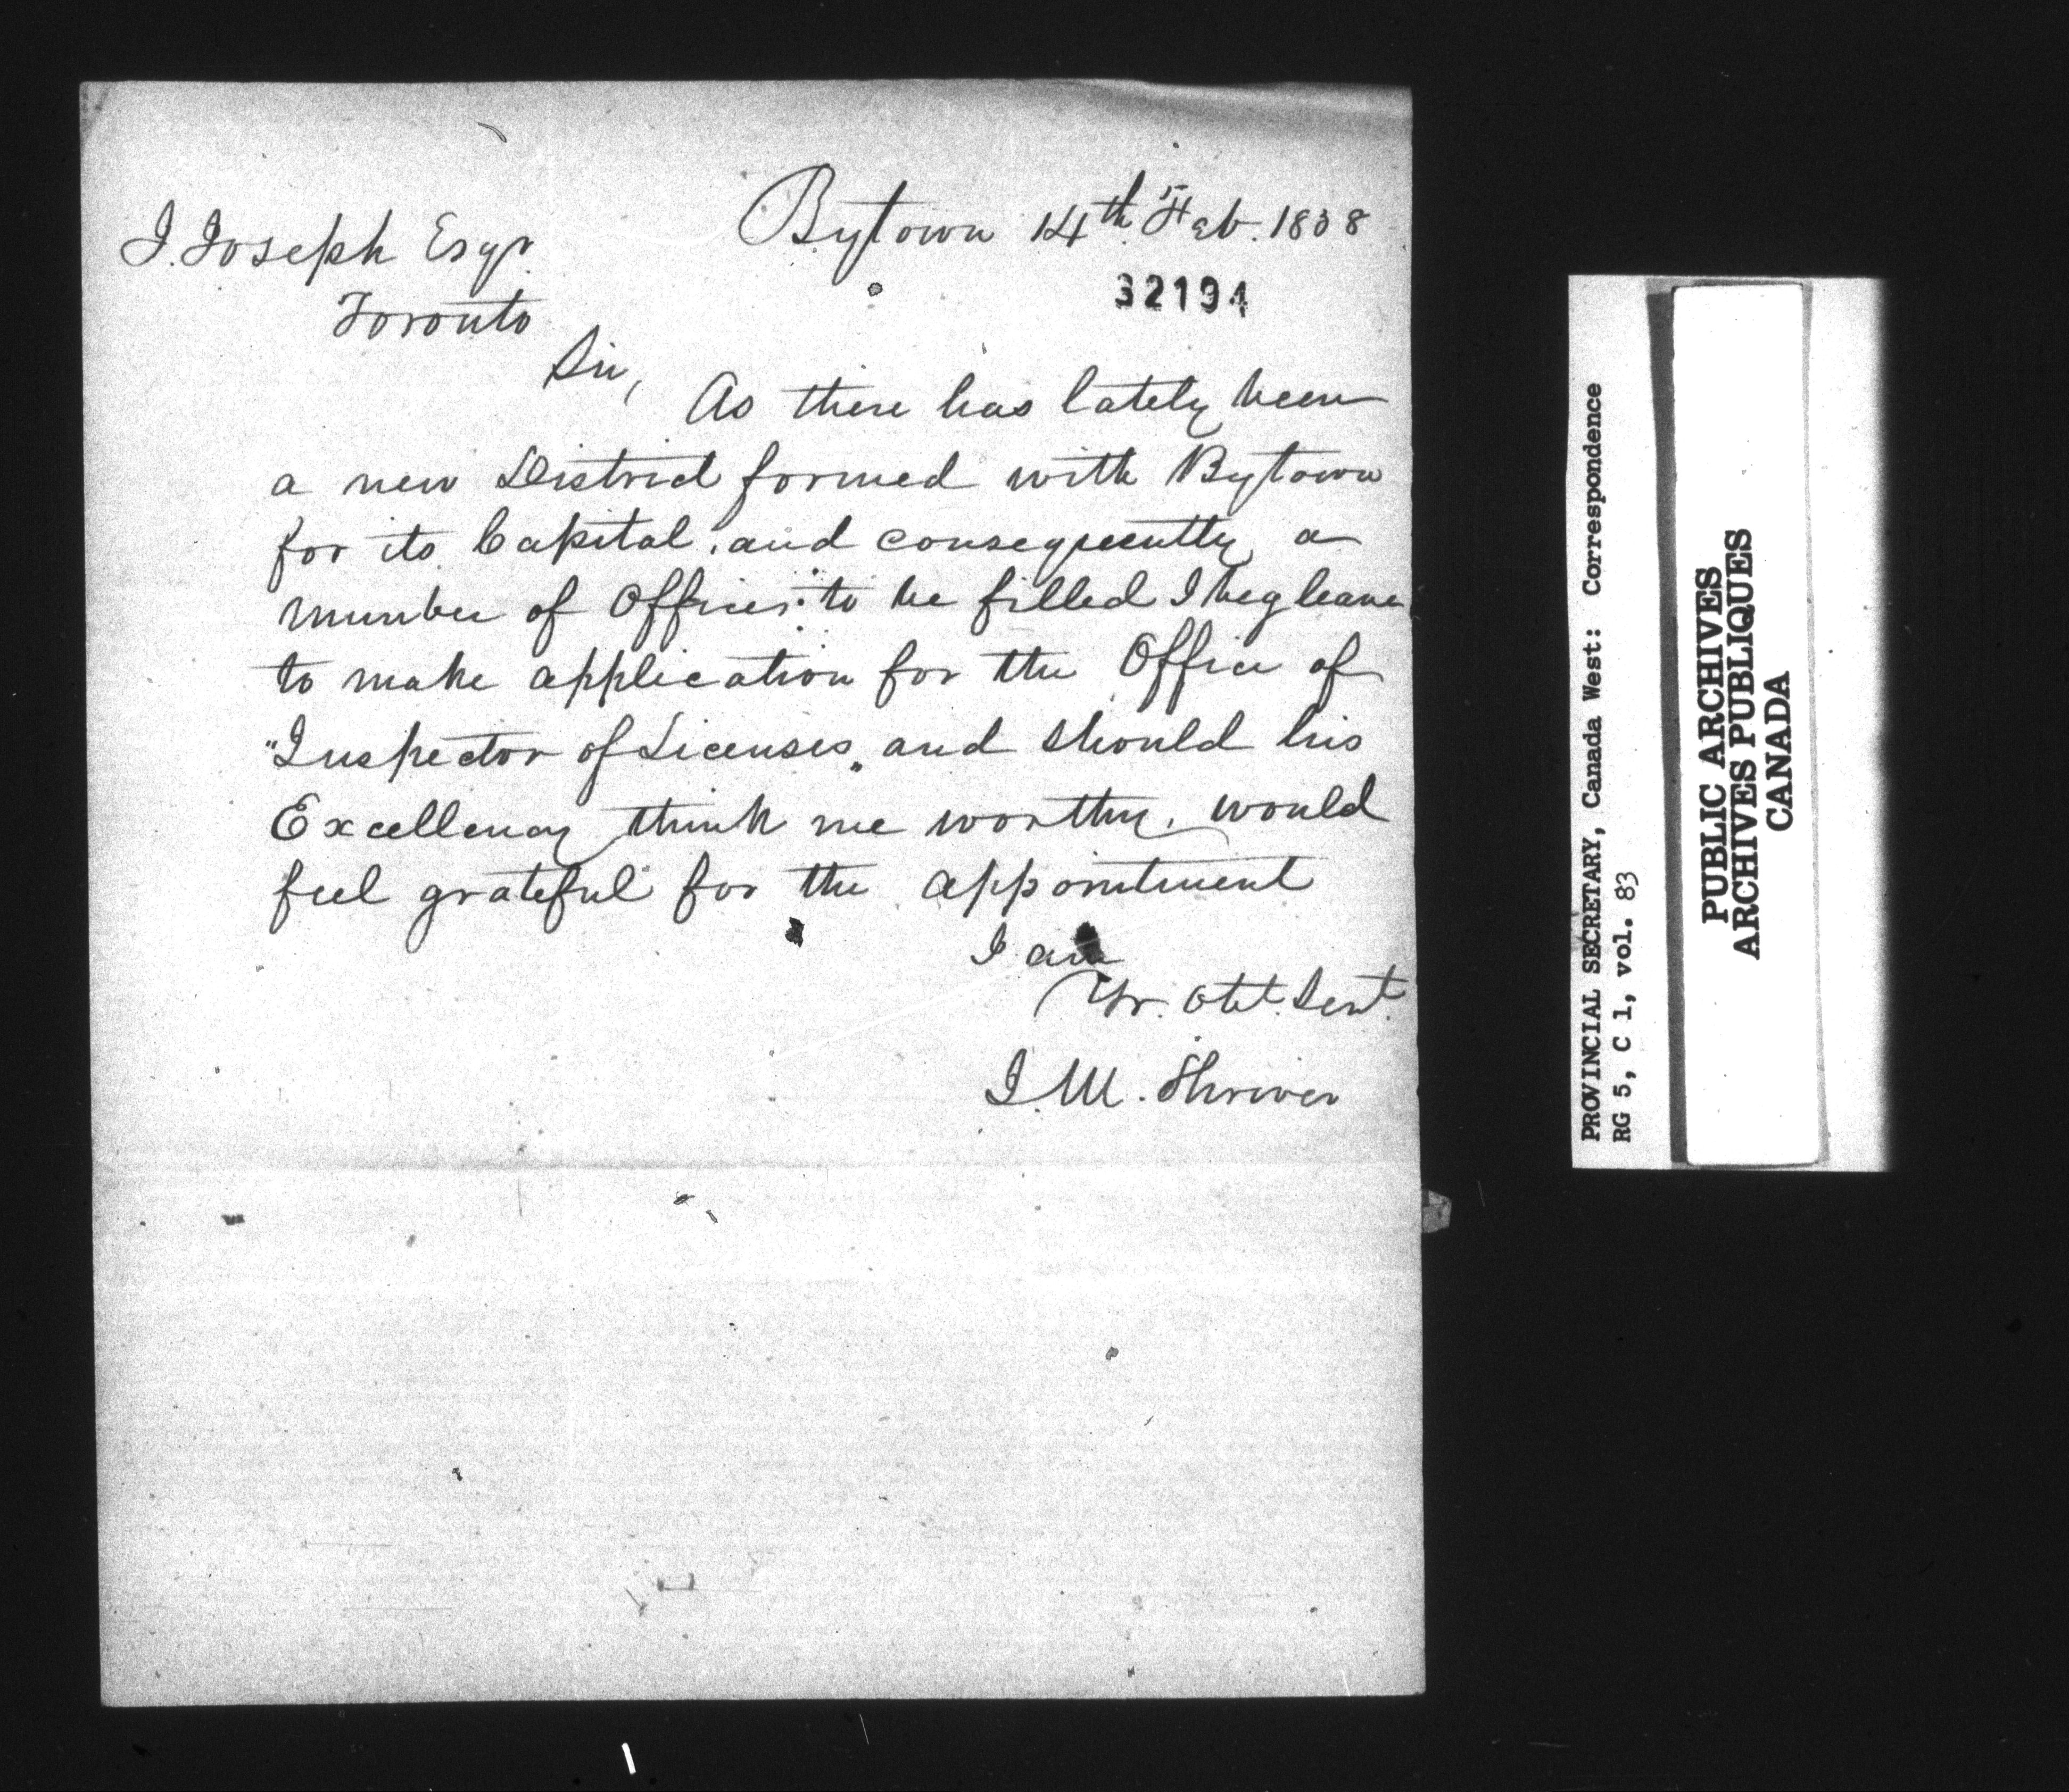 Bytown 14th Feb. 1838
J. Joseph Esqr.
Toronto
32194
Sir,
As there has lately been
a new District formed with Bytown
for its Capital, and consequently a
number of Offices to be filled I beg leave
to make application for the Office of
"Inspector of Licenses" and should his
Excellency think me worthy, would
feel grateful for the appointment
I am
Yr. Obt. Servt.
J. M. Shriver
PROVINCIAL SECRETARY, Canada West: Correspondence
RG 5, C 1, vol. 83
PUBLIC ARCHIVES
ARCHIVES PUBLIQUES
CANADA